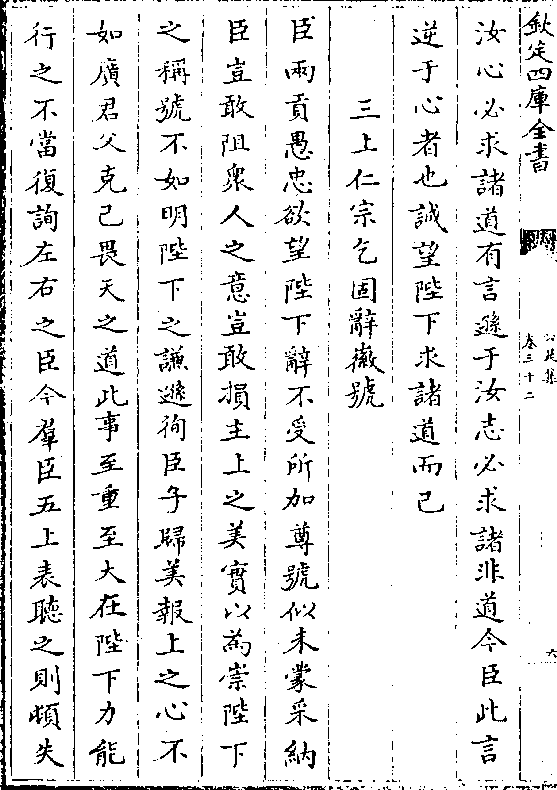 欽定四庫全書
公是集
卷三十二
六
汝心必求諸道有言遜于汝志必求諸非道今臣此言
逆于心者也誠望陛下求諸道而已
三上仁宗乞固辭徽號
臣兩貢愚忠欲望陛下辭不受所加尊號似未蒙采納
臣豈敢阻衆人之意豈敢損主上之美實以為崇陛下
之稱號不如明陛下之謙遜徇臣子歸美報上之心不
如廣君父克己畏天之道此事至重至大在陛下力能
行之不當復詢左右之臣今羣臣五上表聽之則頓失